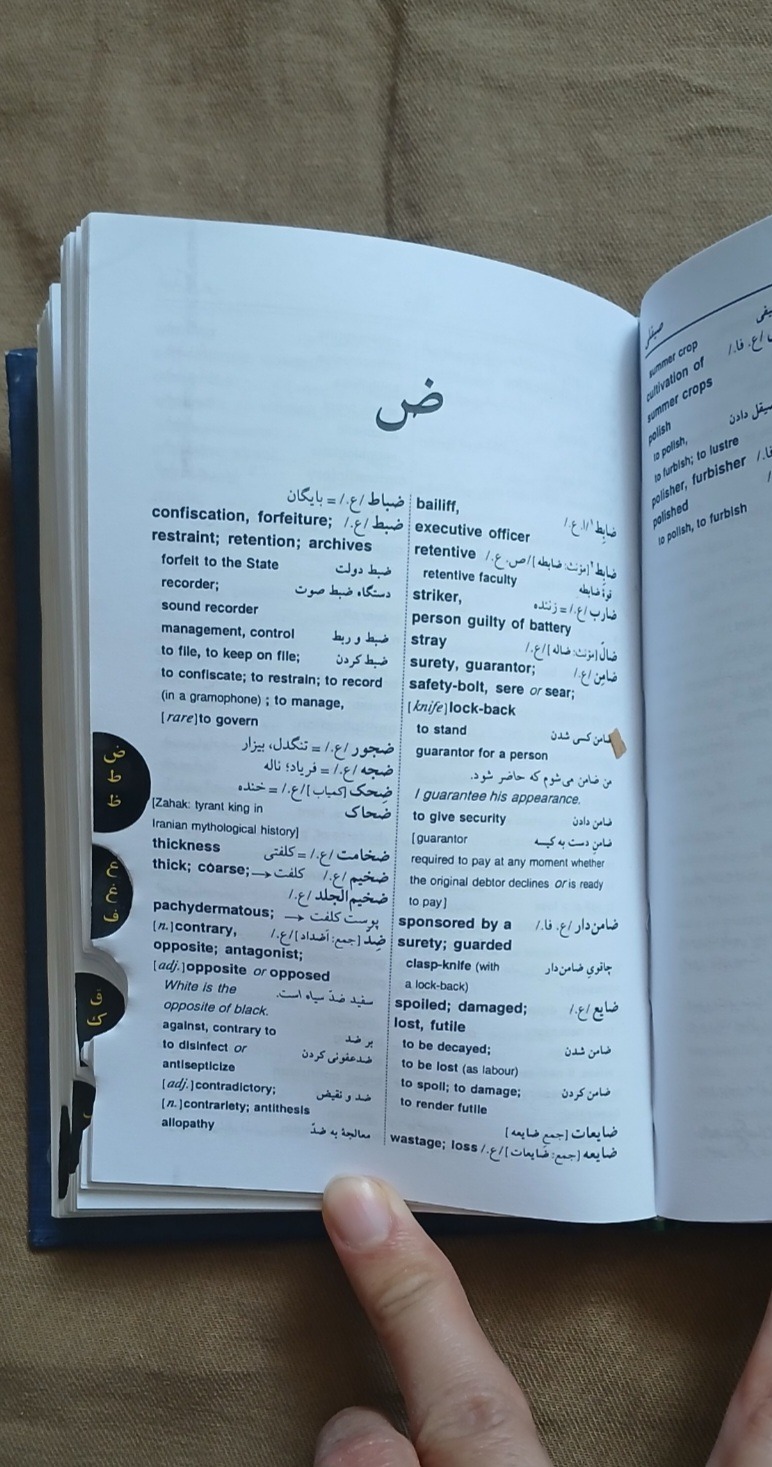 ض
bailiff, ضابِط¹/ا.ع./
executive officer
retentive ضابِط²[مؤنث: ضابطه]/ص.ع./
retentive faculty قوهٔ ضابطه
striker, ضارب/ع./= زننده
person guilty of battery
stray ضالّ[مؤنث: ضاله]/ع./
surety, guarantor; ضامِن/ع./
safety-bolt, sere or sear;
[knife]lock-back
to stand ضامن کسی شدن
guarantor for a person
من ضامن می‌شوم که حاضر شود.
I guarantee his appearance.
to give security ضامن دادن
[guarantor ضامن دست به کیسه
required to pay at any moment whether
the original debtor declines or is ready
to pay]
sponsored by a ضامن‌دار/ع. فا./
surety; guarded
clasp-knife (with چاقوی ضامن‌دار
a lock-back)
spoiled; damaged; ضایع/ع./
lost, futile
to be decayed; ضامن شدن
to be lost (as labour)
to spoil; to damage; ضامن کردن
to render futile
ضایعات [جمع ضایعه]
wastage; loss ضایعه[جمع: ضایعات]/ع./
ضباط/ع./= بایگان
confiscation, forfeiture; ضبط/ع./
restraint; retention; archives
forfeit to the State ضبط دولت
recorder; دستگاه ضبط صوت
sound recorder
management, control ضبط و ربط
to file, to keep on file; ضبط کردن
to confiscate; to restrain; to record
(in a gramophone) ; to manage,
[rare]to govern
ضجور/ع./= تنگدل، بیزار
ضجه/ع./= فریاد؛ ناله
ضِحک[کمیاب]/ع./= خنده
[Zahak: tyrant king in ضحاک
Iranian mythological history]
thickness ضخامت/ع./= کلفتی
thick; coarse; ضخیم/ع./ کلفت →
ضخیم‌الجلد/ع./
pachydermatous; پوست کلفت →
[n.]contrary, ضِد[جمع: أضداد]/ع./
opposite; antagonist;
[adj.]opposite or opposed
White is the سفید ضدّ سیاه است.
opposite of black.
against, contrary to بر ضد
to disinfect or ضدعفونی کردن
antisepticize
[adj.]contradictory; ضد و نقیض
[n.]contrariety; antithesis
allopathy معالجهٔ به ضدّ
ض ط ظ
ع غ ف
ق ک گ
صیقلی
صیفی
summer crop
cultivation of
summer crops
polish
to polish, صیقل دادن
to furbish; to lustre
polisher, furbisher
polished
to polish, to furbish